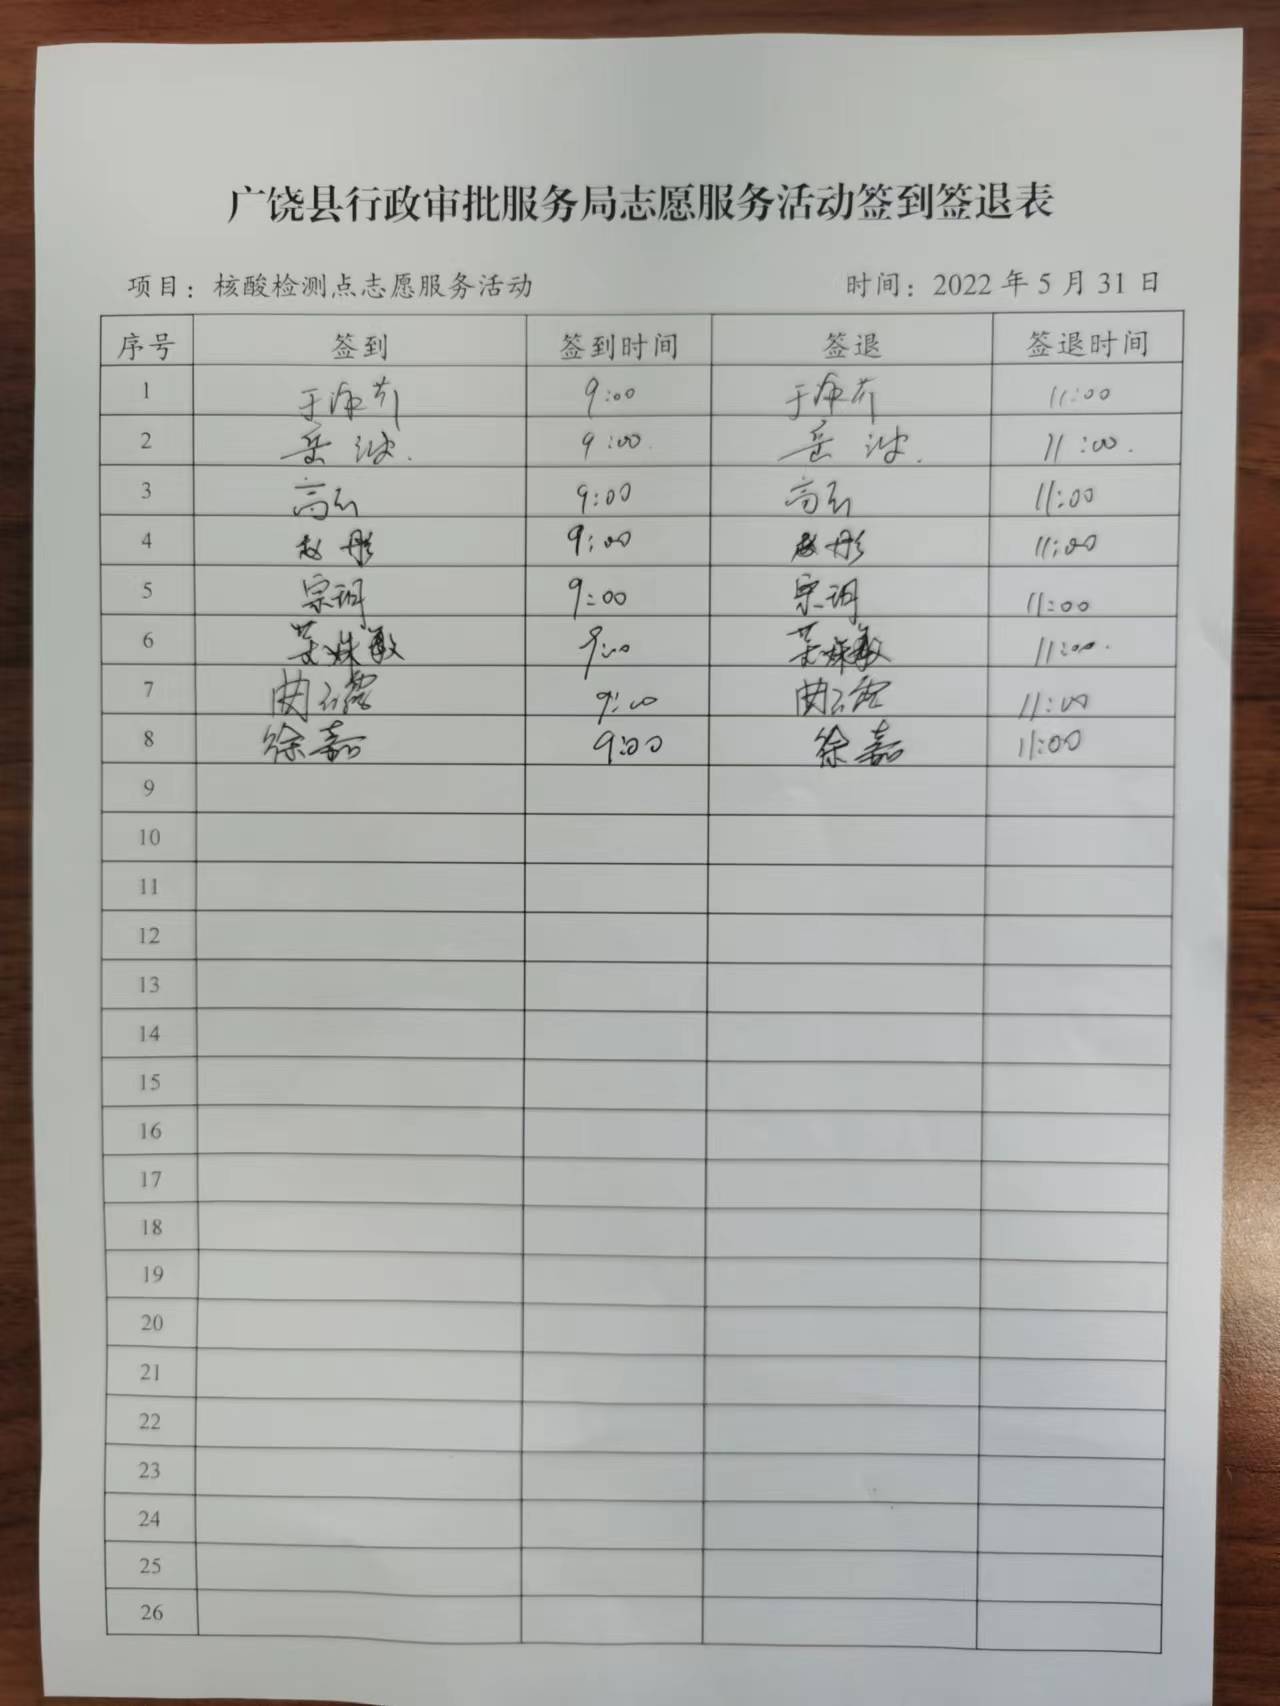 广饶县行政审批服务局志愿服务活动签到签退表
项目：核酸检测点志愿服务活动 时间：2022年5月31日
序号 签到 签到时间 签退 签退时间
1 9:00 11:00
2 岳波 9:00 岳波 11:00
3 9:00 11:00
4 赵彤 9:00 赵彤 11:00
5 宗珊 9:00 宗珊 11:00
6 9:00 11:00
7 9:00 11:00
8 徐嘉 9:00 徐嘉 11:00
9
10
11
12
13
14
15
16
17
18
19
20
21
22
23
24
25
26